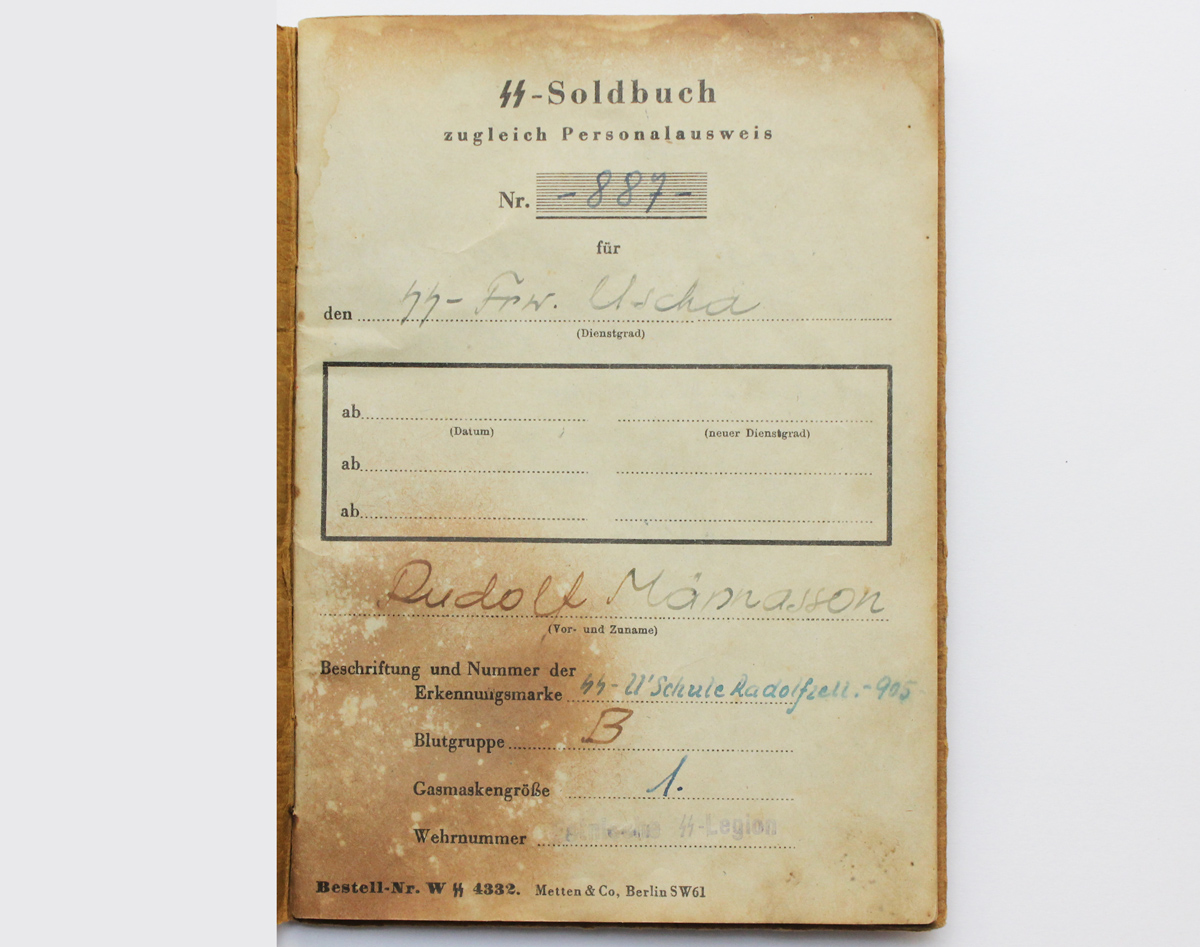 SS-Soldbuch
zugleich Personalausweis
Nr. -887-
für
den SS-Frw. Uscha
(Dienstgrad)
ab
(Datum) (neuer Dienstgrad)
ab
ab
Rudolf Männasson
(Vor- und Zuname)
Beschriftung und Nummer der
Erkennungsmarke SS-U'Schule Radolfzell.-905
Blutgruppe B
Gasmaskengröße 1.
Wehrnummer SS-Legion
Bestell-Nr. W SS 4332. Metten & Co, Berlin SW61